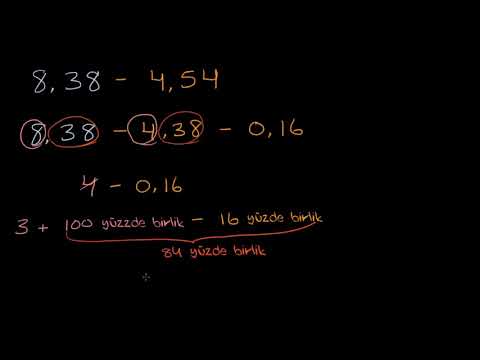 8,38 - 4,54
8,38 - 4,38 - 0,16
4 - 0,16
3 + 100 yüzzde birlik - 16 yüzde birlik
84 yüzde birlik